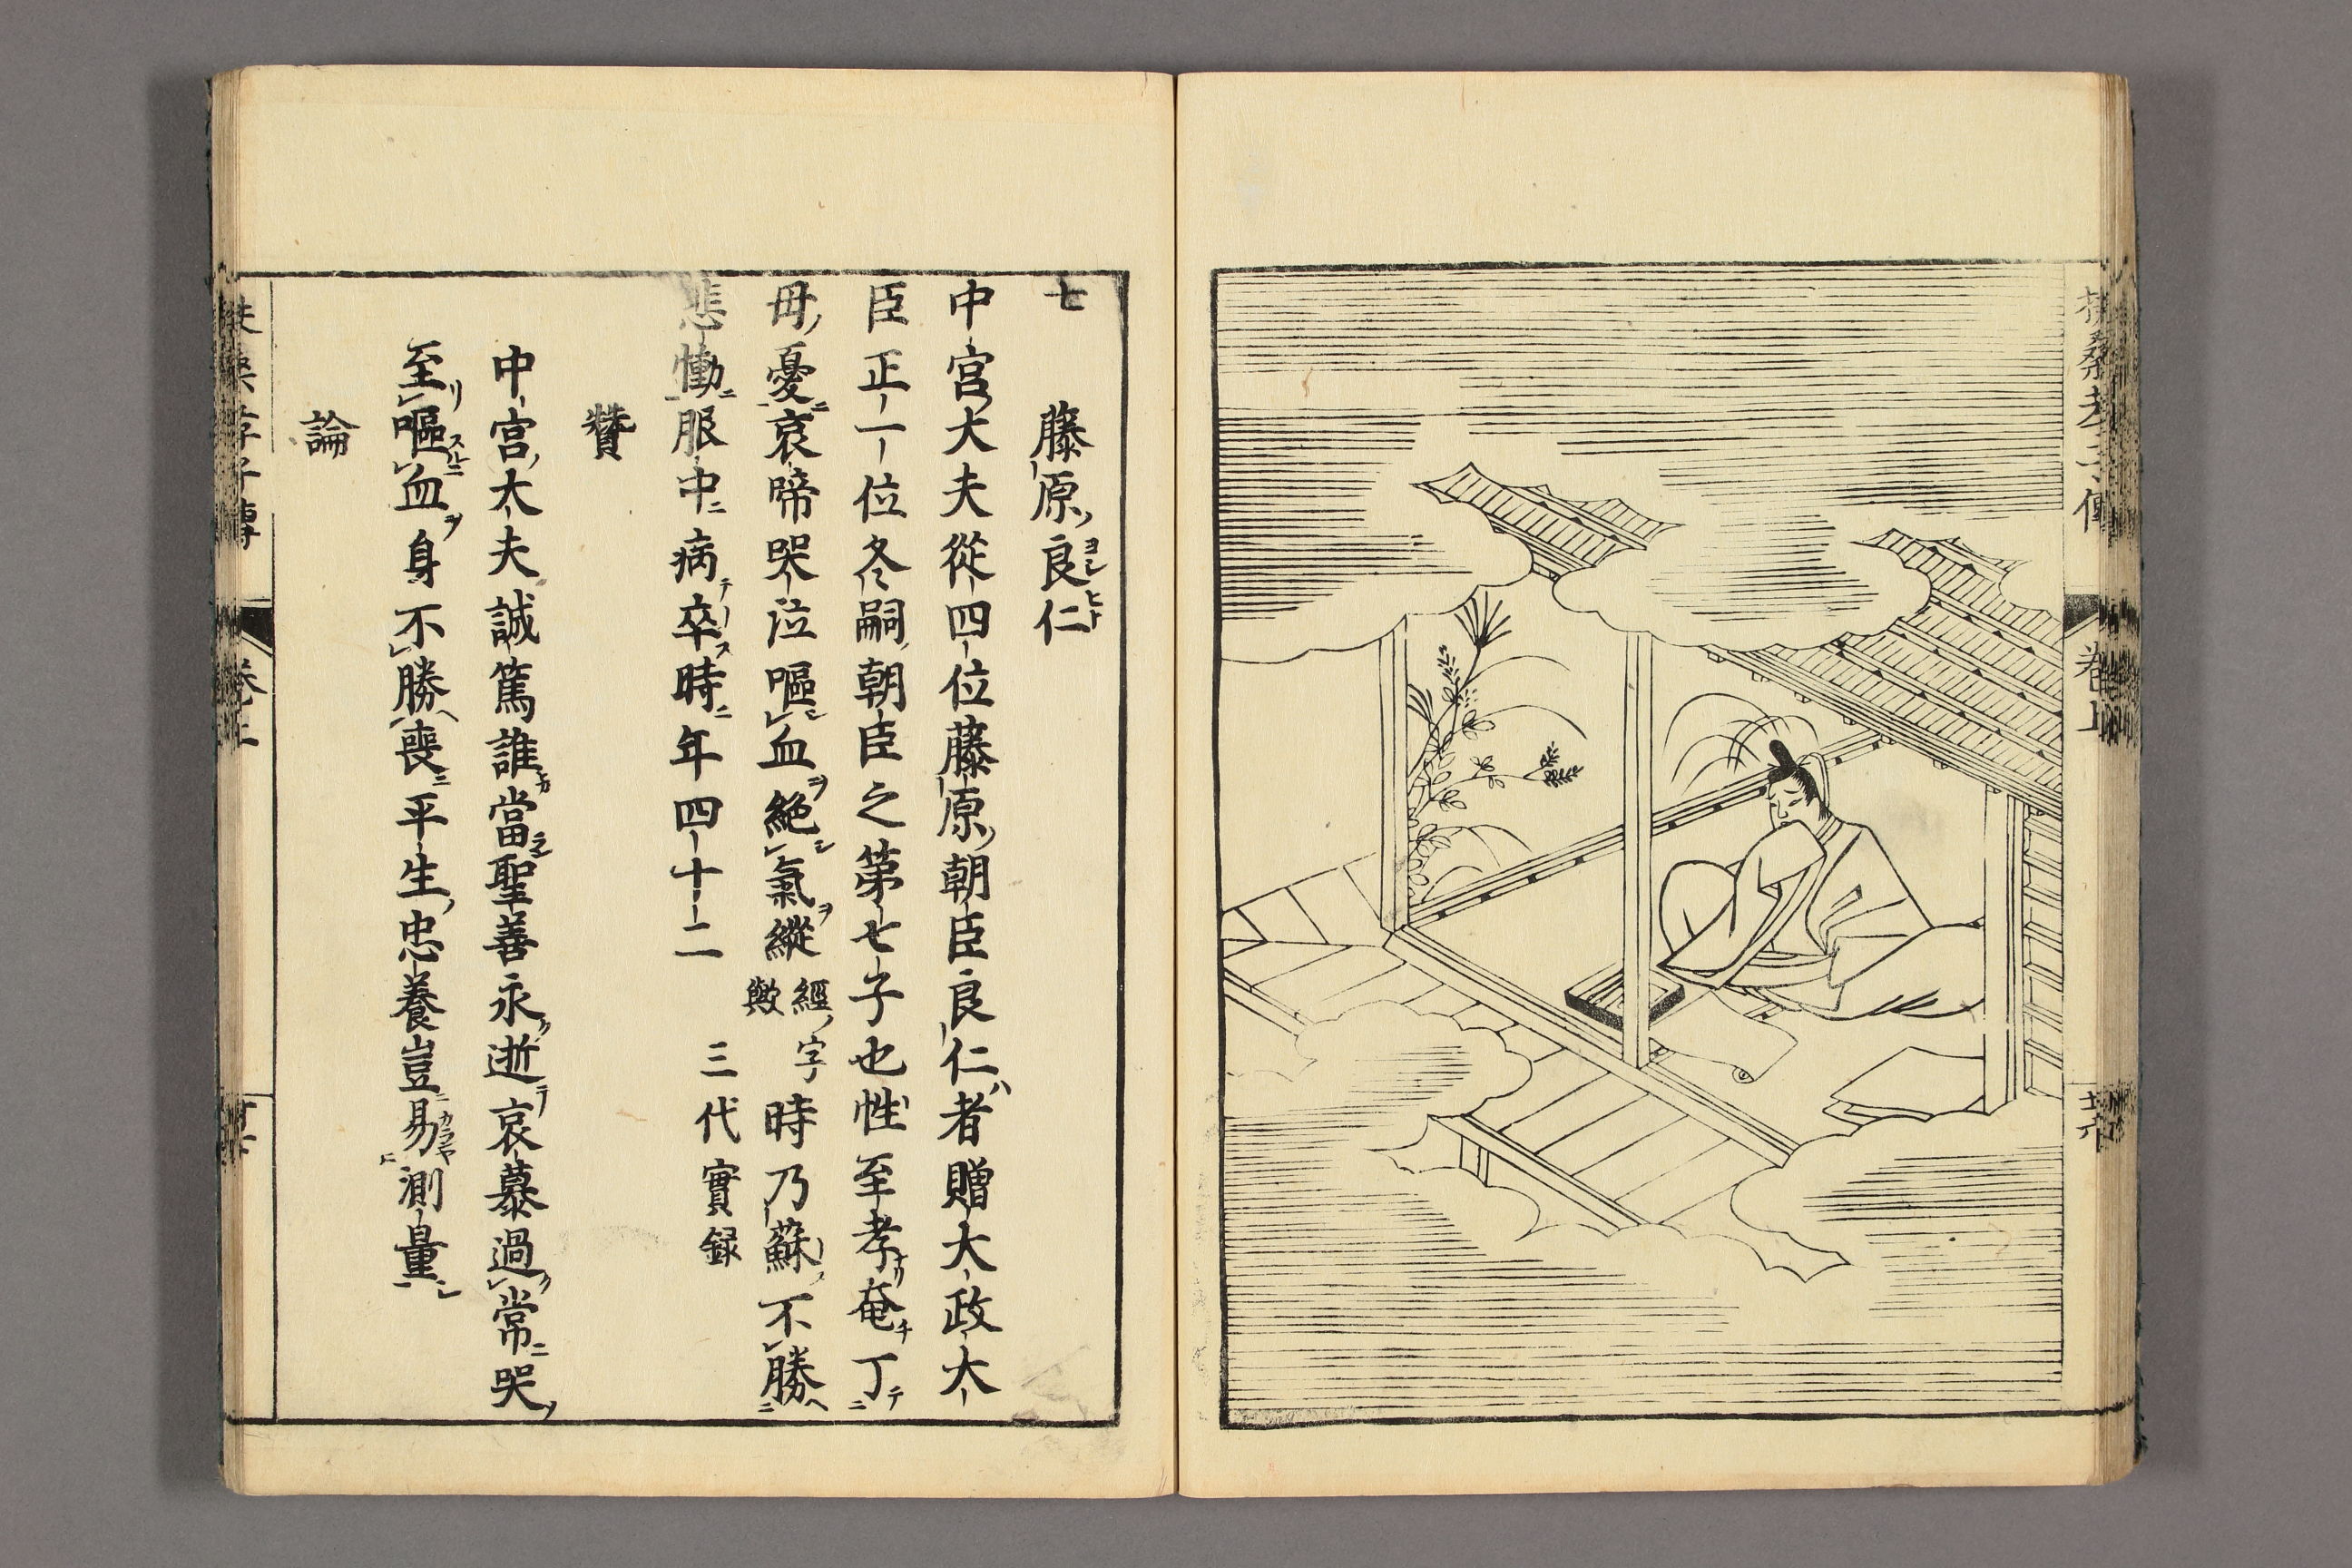 扶桑孝子傳
卷上
七 藤原良仁
ヨシヒト
中宮大夫從四位藤原朝臣良仁者贈大政大
臣正一位冬嗣朝臣之第七子也性至孝奄丁
母憂哀啼哭泣嘔血絶氣縱經字歟時乃蘇不勝
悲慟服中病卒時年四十二 三代實録
贊
中宮大夫誠篤誰當聖善永逝哀慕過常哭
至嘔血身不勝喪平生忠養豈易測量
論
孝子傳